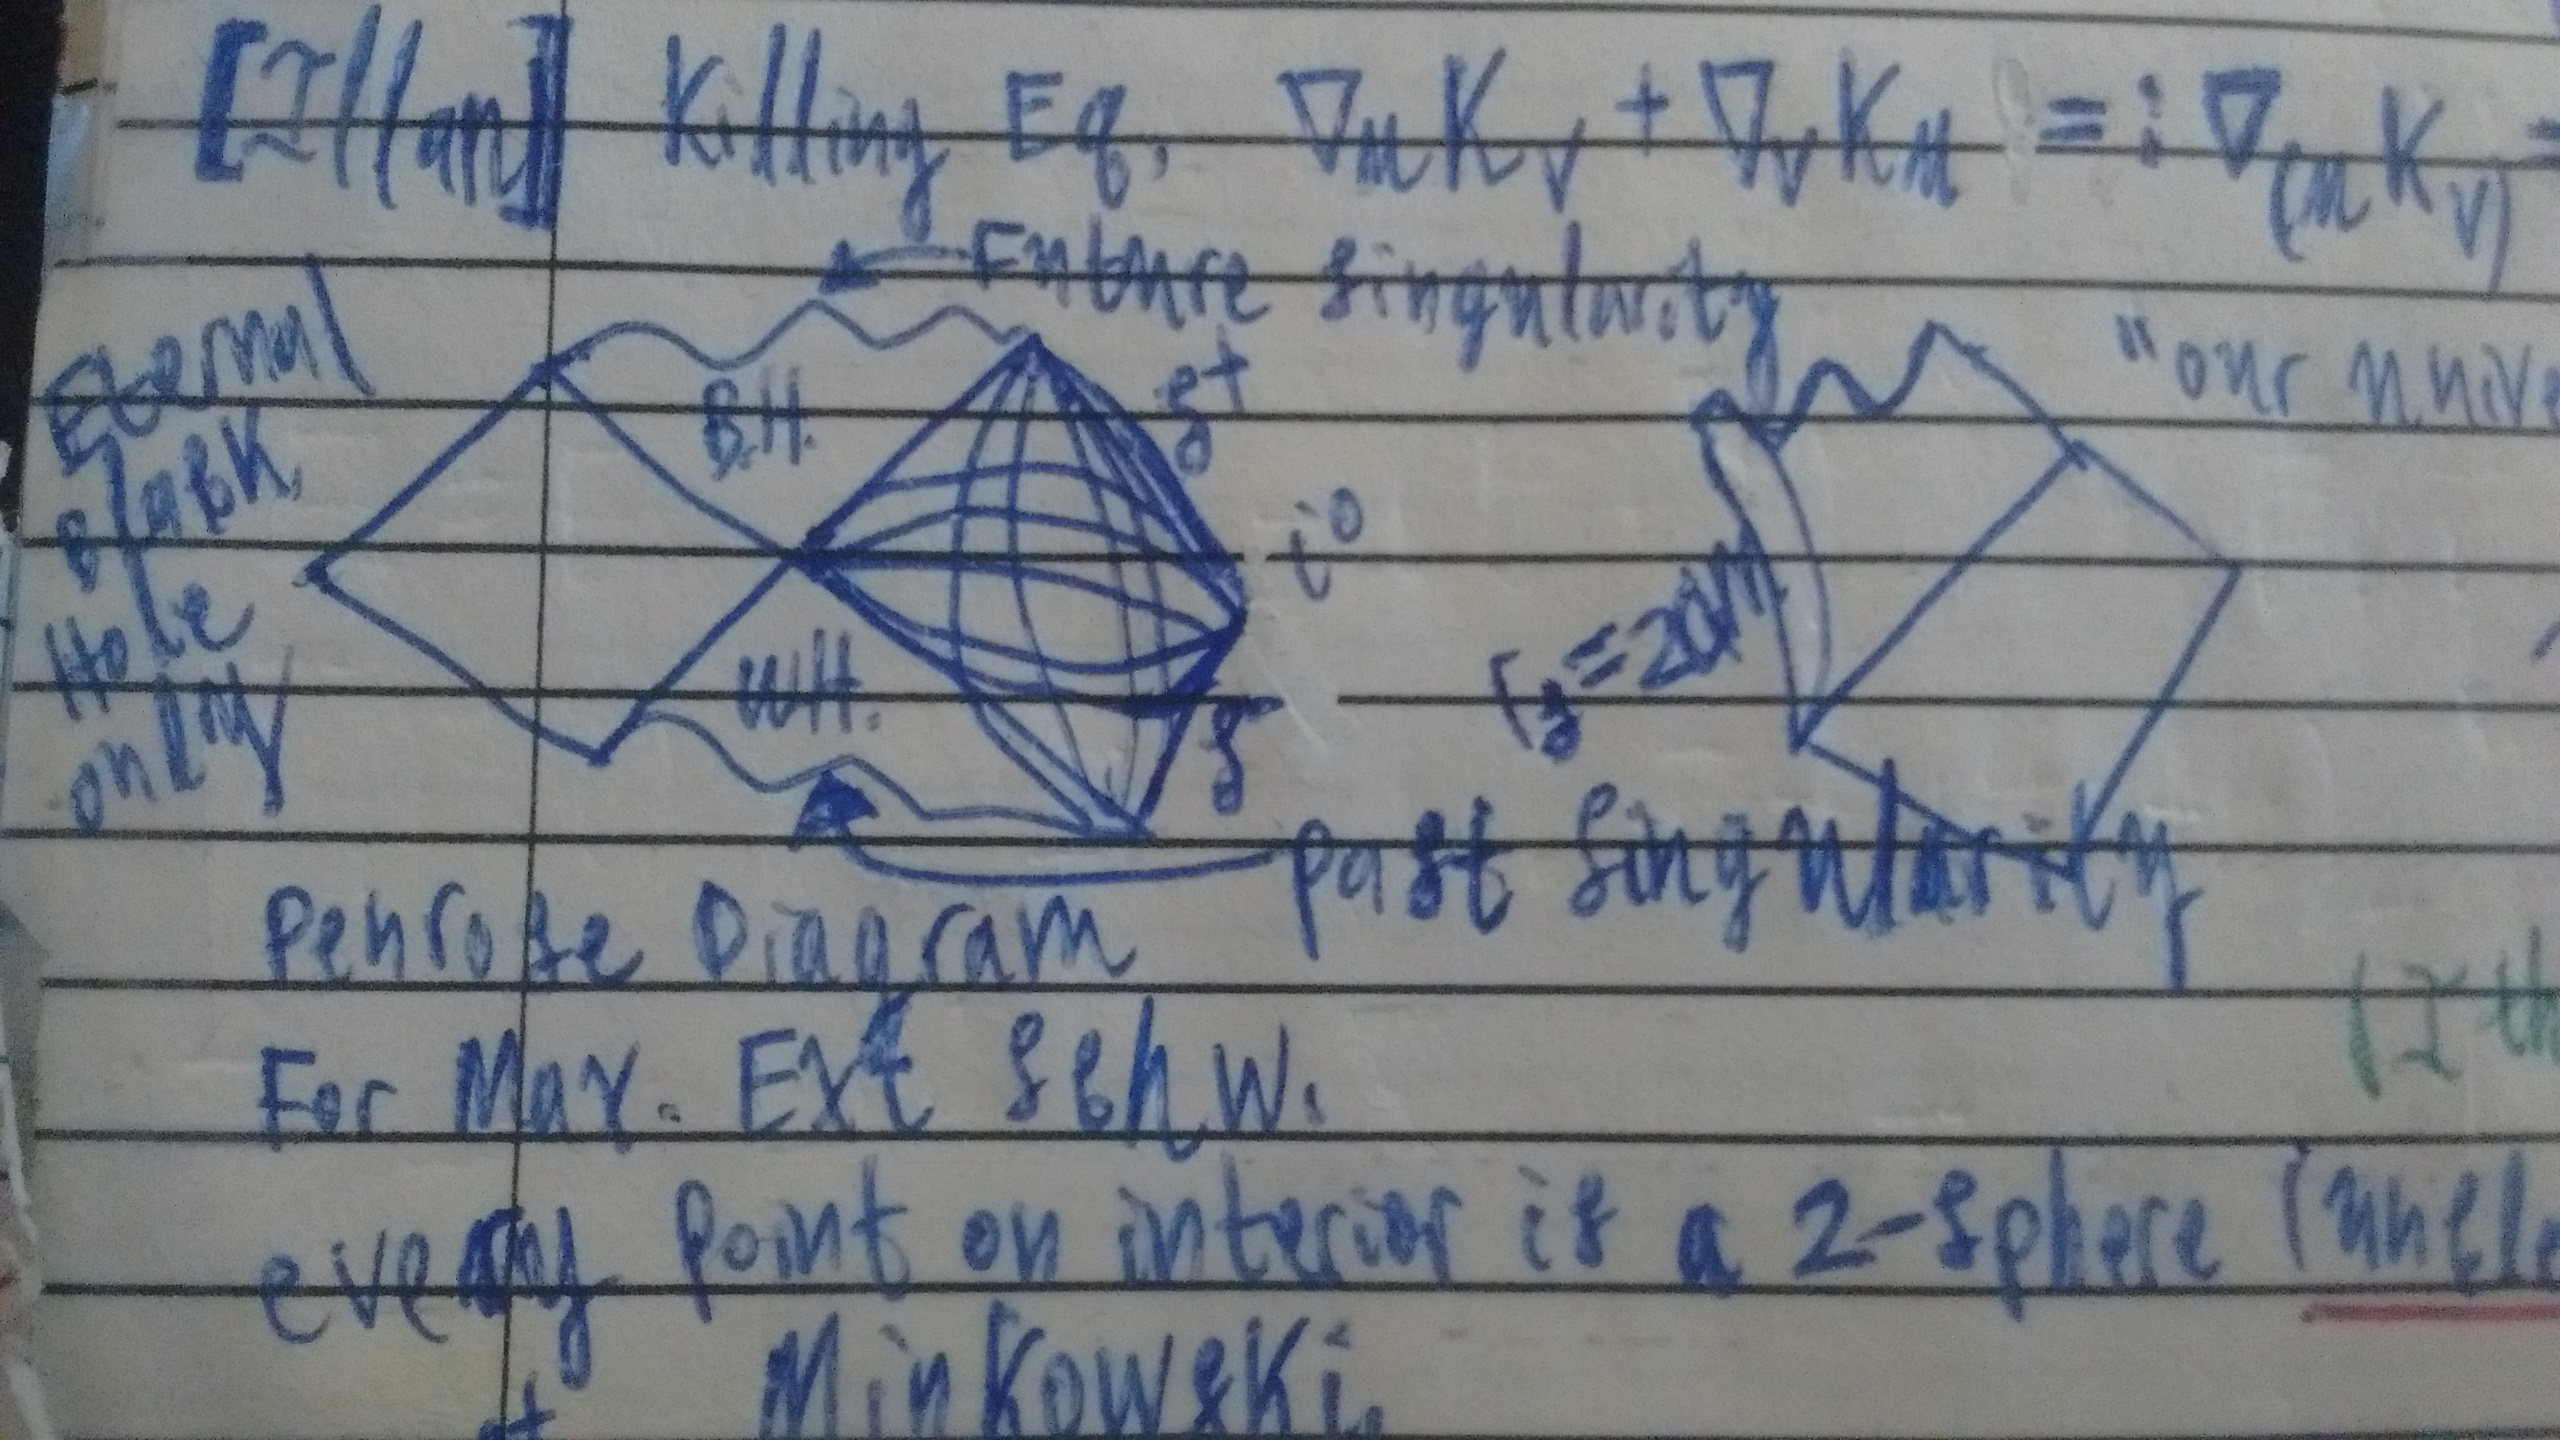 Killing Eq. ∇μKν + ∇νKμ =: ∇(μKν) =
Future singularity
Eternal
Black
Hole
only
B.H.
W.H.
i⁰
"our unive
r_s = 2GM
past singularity
Penrose Diagram
For Max. Ext Schw.
every point on interior is a 2-sphere (
Minkowski.